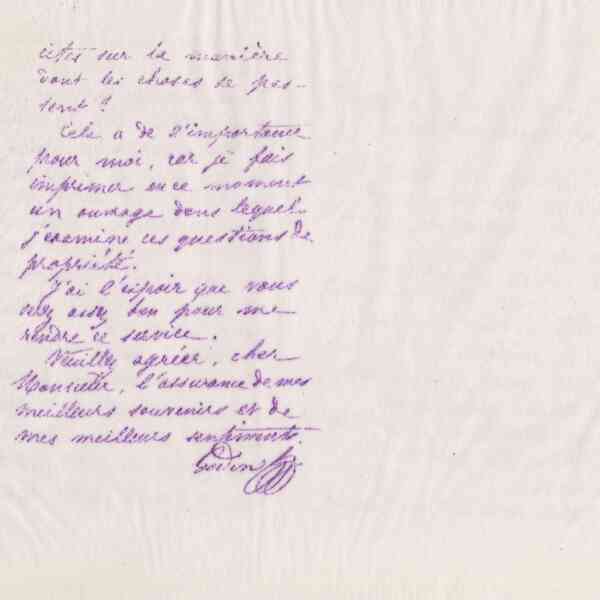 cités sur la manière
dont les choses se pas-
sent ?
Cela a de l'importance
pour moi, car je fais
imprimer en ce moment
un ouvrage dans lequel
j'examine ces questions de
propriété.
J'ai l'espoir que vous
serez assez bon pour me
rendre ce service.
Veuillez agréer, cher
Monsieur, l'assurance de mes
meilleurs souvenirs et de
mes meilleurs sentiments.
Godin